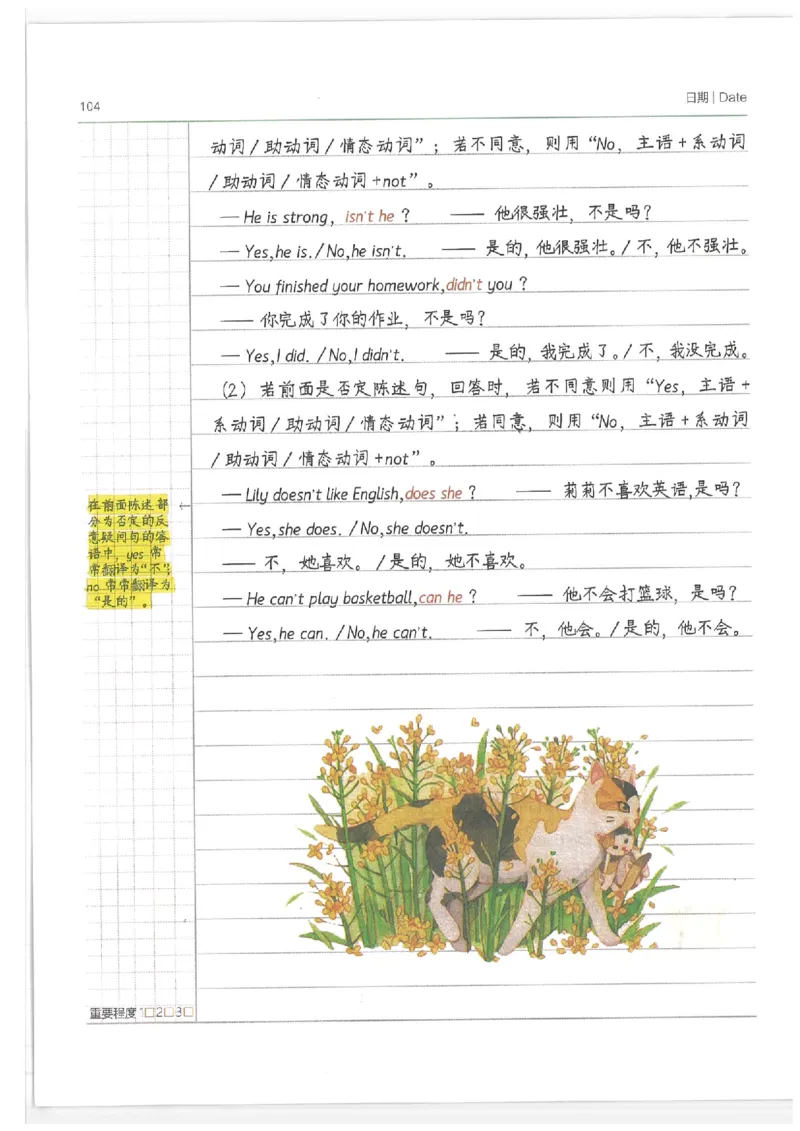 104
日期 | Date
动词 / 助动词 / 情态动词”；若不同意，则用“No，主语 + 系动词
/ 助动词 / 情态动词 +not”。
— He is strong，isn't he？ —— 他很强壮，不是吗？
— Yes,he is. / No,he isn't. —— 是的，他很强壮。/ 不，他不强壮。
— You finished your homework,didn't you？
—— 你完成了你的作业，不是吗？
— Yes,I did. / No,I didn't. —— 是的，我完成了。/ 不，我没完成。
（2）若前面是否定陈述句，回答时，若不同意则用“Yes，主语 +
系动词 / 助动词 / 情态动词”；若同意，则用“No，主语 + 系动词
/ 助动词 / 情态动词 +not”。
— Lily doesn't like English,does she？ —— 莉莉不喜欢英语,是吗？
— Yes,she does. / No,she doesn't.
—— 不，她喜欢。/ 是的，她不喜欢。
— He can't play basketball,can he？ —— 他不会打篮球，是吗？
— Yes,he can. / No,he can't. —— 不，他会。/ 是的，他不会。
在前面陈述部
分为否定的反
意疑问句的答
语中，yes 常
常翻译为“不”；
no 常常翻译为
“是的”。
重要程度 1□2□3□